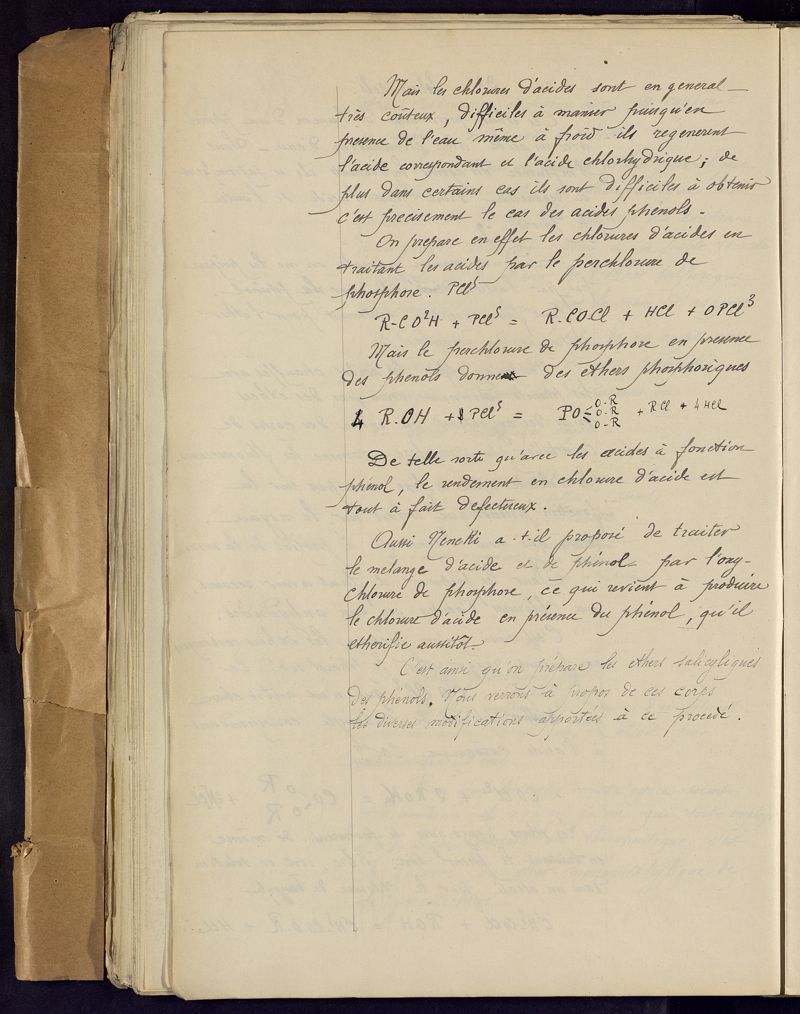 Mais les chlorures d'acides sont en general
très coûteux, difficiles à manier puisqu'en
presence de l'eau même à froid ils regenerent
l'acide correspondant et l'acide chlorhydrique; de
plus dans certains cas ils sont difficiles à obtenir
c'est precisement le cas des acides phenols.
On prepare en effet les chlorures d'acides en
traitant les acides par le perchlorure de
phosphore. PCl⁵
R-CO²H + PCl⁵ = R.CO.Cl + HCl + OPCl³
Mais le perchlorure de phosphore en presence
des phenols donne des ethers phosphoriques
4 R.OH + PCl⁵ = PO O-R O-R O-R + RCl + 4HCl
De telle sorte qu'avec les acides à fonction
phénol, le rendement en chlorure d'acide est
tout à fait defectueux.
Aussi Nencki a-t-il proposé de traiter
le melange d'acide et de phénol par l'oxy-
chlorure de phosphore, ce qui revient à produire
le chlorure d'acide en présence du phénol, qu'il
etherifie aussitôt.
C'est ainsi qu'on prépare les ethers salicyliques
des phénols. Nous verrons à propos de ces corps
les diverses modifications apportées à ce procedé.